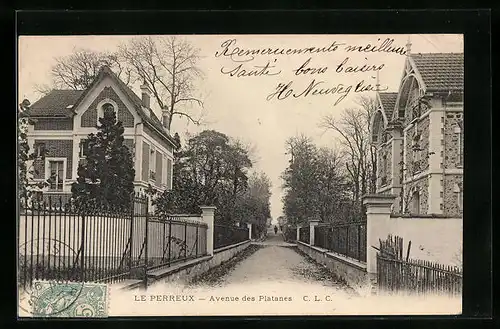 Remerciements meilleure
Santé bons baisers
H Neuveglise
LE PERREUX — Avenue des Platanes C. L. C.